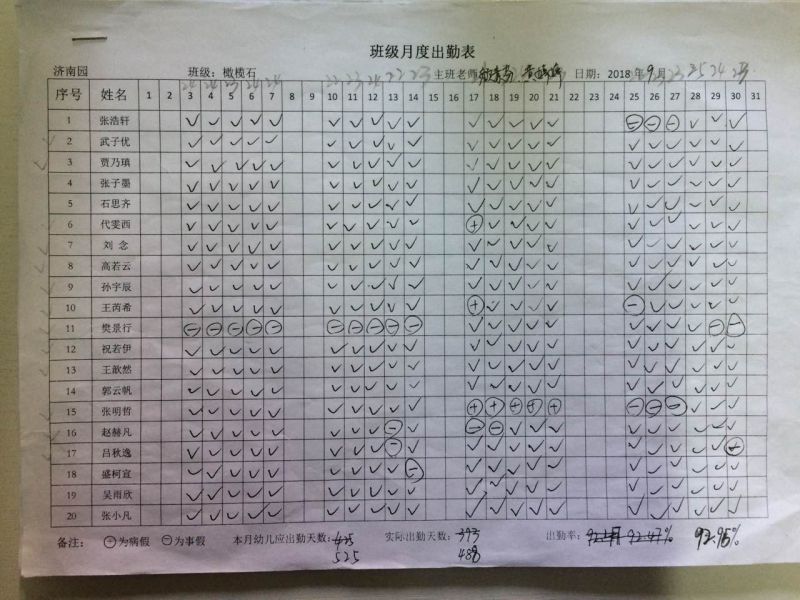 班级月度出勤表
济南园 班级：橄榄石 主班老师 日期：2018年9月
24 24 23 24 24 22 23 24 22 23 23 25 24 23
序号 姓名 1 2 3 4 5 6 7 8 9 10 11 12 13 14 15 16 17 18 19 20 21 22 23 24 25 26 27 28 29 30 31
1 张浩轩 ✓ ✓ ✓ ✓ ✓ ✓ ✓ ✓ ✓ ✓ ✓ ✓ ✓ ✓ ✓ ⊖ ⊖ ⊖ ✓ ✓ ✓
2 武子优 ✓ ✓ ✓ ✓ ✓ ✓ ✓ ✓ ✓ ✓ ✓ ✓ ✓ ✓ ✓ ✓ ✓ ✓ ✓ ✓ ✓
3 贾乃瑱 ✓ ✓ ✓ ✓ ✓ ✓ ✓ ✓ ✓ ✓ ✓ ✓ ✓ ✓ ✓ ✓ ✓ ✓ ✓ ✓ ✓
4 张子墨 ✓ ✓ ✓ ✓ ✓ ✓ ✓ ✓ ✓ ✓ ✓ ✓ ✓ ✓ ✓ ✓ ✓ ✓ ✓ ✓ ✓
5 石思齐 ✓ ✓ ✓ ✓ ✓ ✓ ✓ ✓ ✓ ✓ ✓ ✓ ✓ ✓ ✓ ✓ ✓ ✓ ✓ ✓ ✓
6 代雯西 ✓ ✓ ✓ ✓ ✓ ✓ ✓ ✓ ✓ ✓ ⊕ ✓ ✓ ✓ ✓ ✓ ✓ ✓ ✓ ✓ ✓
7 刘念 ✓ ✓ ✓ ✓ ✓ ✓ ✓ ✓ ✓ ✓ ✓ ✓ ✓ ✓ ✓ ✓ ✓ ✓ ✓ ✓ ✓
8 高若云 ✓ ✓ ✓ ✓ ✓ ✓ ✓ ✓ ✓ ✓ ✓ ✓ ✓ ✓ ✓ ✓ ✓ ✓ ✓ ✓ ✓
9 孙宇辰 ✓ ✓ ✓ ✓ ✓ ✓ ✓ ✓ ✓ ✓ ✓ ✓ ✓ ✓ ✓ ✓ ✓ ✓ ✓ ✓ ✓
10 王芮希 ✓ ✓ ✓ ✓ ✓ ✓ ✓ ✓ ✓ ✓ ⊕ ✓ ✓ ✓ ✓ ⊖ ✓ ✓ ✓ ✓ ✓
11 樊景行 ⊖ ⊖ ⊖ ⊖ ⊖ ⊖ ⊖ ⊖ ⊖ ⊖ ✓ ✓ ✓ ✓ ✓ ✓ ✓ ✓ ✓ ⊖ ⊖
12 祝若伊 ✓ ✓ ✓ ✓ ✓ ✓ ✓ ✓ ✓ ✓ ✓ ✓ ✓ ✓ ✓ ✓ ✓ ✓ ✓ ✓ ✓
13 王歆然 ✓ ✓ ✓ ✓ ✓ ✓ ✓ ✓ ✓ ✓ ✓ ✓ ✓ ✓ ✓ ✓ ✓ ✓ ✓ ✓ ✓
14 郭云帆 ✓ ✓ ✓ ✓ ✓ ✓ ✓ ✓ ✓ ✓ ✓ ✓ ✓ ✓ ✓ ✓ ✓ ✓ ✓ ✓ ✓
15 张明哲 ✓ ✓ ✓ ✓ ✓ ✓ ✓ ✓ ✓ ✓ ⊕ ⊕ ⊕ ⊕ ⊕ ⊖ ⊖ ⊖ ✓ ✓ ✓
16 赵赫凡 ✓ ✓ ✓ ✓ ✓ ✓ ✓ ✓ ⊖ ✓ ⊖ ⊖ ✓ ✓ ✓ ✓ ✓ ✓ ✓ ✓ ✓
17 吕秋逸 ✓ ✓ ✓ ✓ ✓ ✓ ✓ ✓ ⊖ ✓ ✓ ✓ ✓ ✓ ✓ ✓ ✓ ✓ ✓ ✓ ⊕
18 盛柯宣 ✓ ✓ ✓ ✓ ✓ ✓ ✓ ✓ ✓ ⊖ ✓ ✓ ✓ ✓ ✓ ✓ ✓ ✓ ✓ ✓ ✓
19 吴雨欣 ✓ ✓ ✓ ✓ ✓ ✓ ✓ ✓ ✓ ✓ ✓ ✓ ✓ ✓ ✓ ✓ ✓ ✓ ✓ ✓ ✓
20 张小凡 ✓ ✓ ✓ ✓ ✓ ✓ ✓ ✓ ✓ ✓ ✓ ✓ ✓ ✓ ✓ ✓ ✓ ✓ ✓ ✓ ✓
备注： ⊕为病假 ⊖为事假 本月幼儿应出勤天数：425 实际出勤天数：393 出勤率： 92.47% 92.95%
525 488